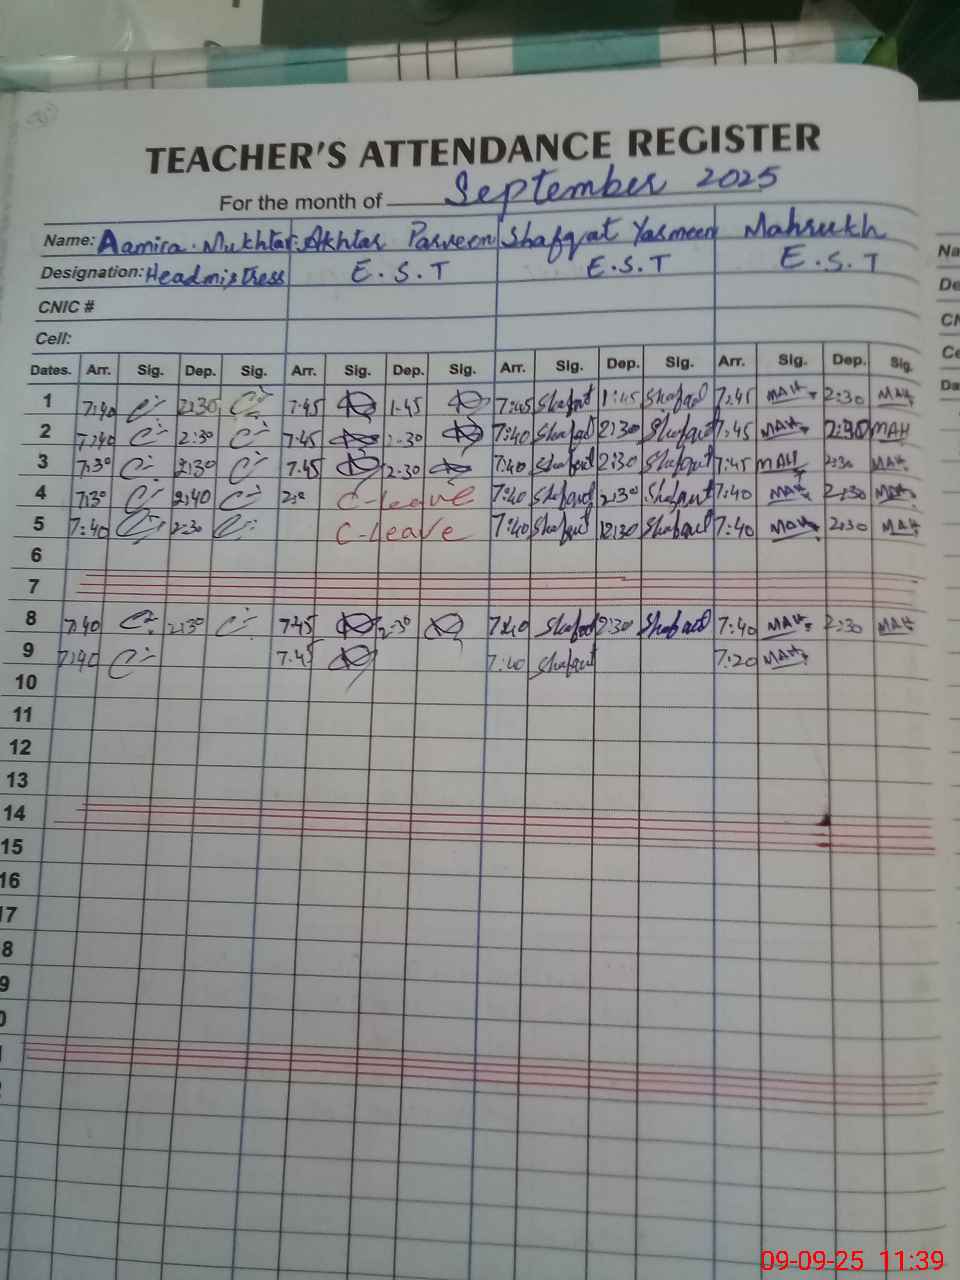 TEACHER'S ATTENDANCE REGISTER
For the month of September 2025
Name: Aamira Mukhtar Akhtar Parveen Shafqat Yasmeen Mahrukh
Designation: Headmistress E.S.T E.S.T E.S.T
CNIC #
Cell:
Dates. Arr. Sig. Dep. Sig. Arr. Sig. Dep. Sig. Arr. Sig. Dep. Sig. Arr. Sig. Dep. Sig.
1 7:40 2:30 7.45 1.45 7:45 Shafqat 1:45 Shafqat 7:45 MAH 2:30 MAH
2 7:40 2:30 7:45 2.30 7:40 Shafqat 2:30 Shafqat 7:45 MAH 2:30 MAH
3 7:30 2:30 7.45 2.30 7:40 Shafqat 2:30 Shafqat 7:45 MAH 2:30 MAH
4 7:30 2:40 C-leave 7:40 Shafqat 2:30 Shafqat 7:40 MAH 2:30 MAH
5 7:40 2:30 C-Leave 7:40 Shafqat 2:30 Shafqat 7:40 MAH 2:30 MAH
6
7
8 7:40 2:30 7.45 2.30 7:40 Shafqat 2:30 Shafqat 7:40 MAH 2:30 MAH
9 7:40 7.45 7:40 Shafqat 7:20 MAH
10
11
12
13
14
15
16
17
8
9
0
Na
De
CN
Ce
Da
09-09-25 11:39